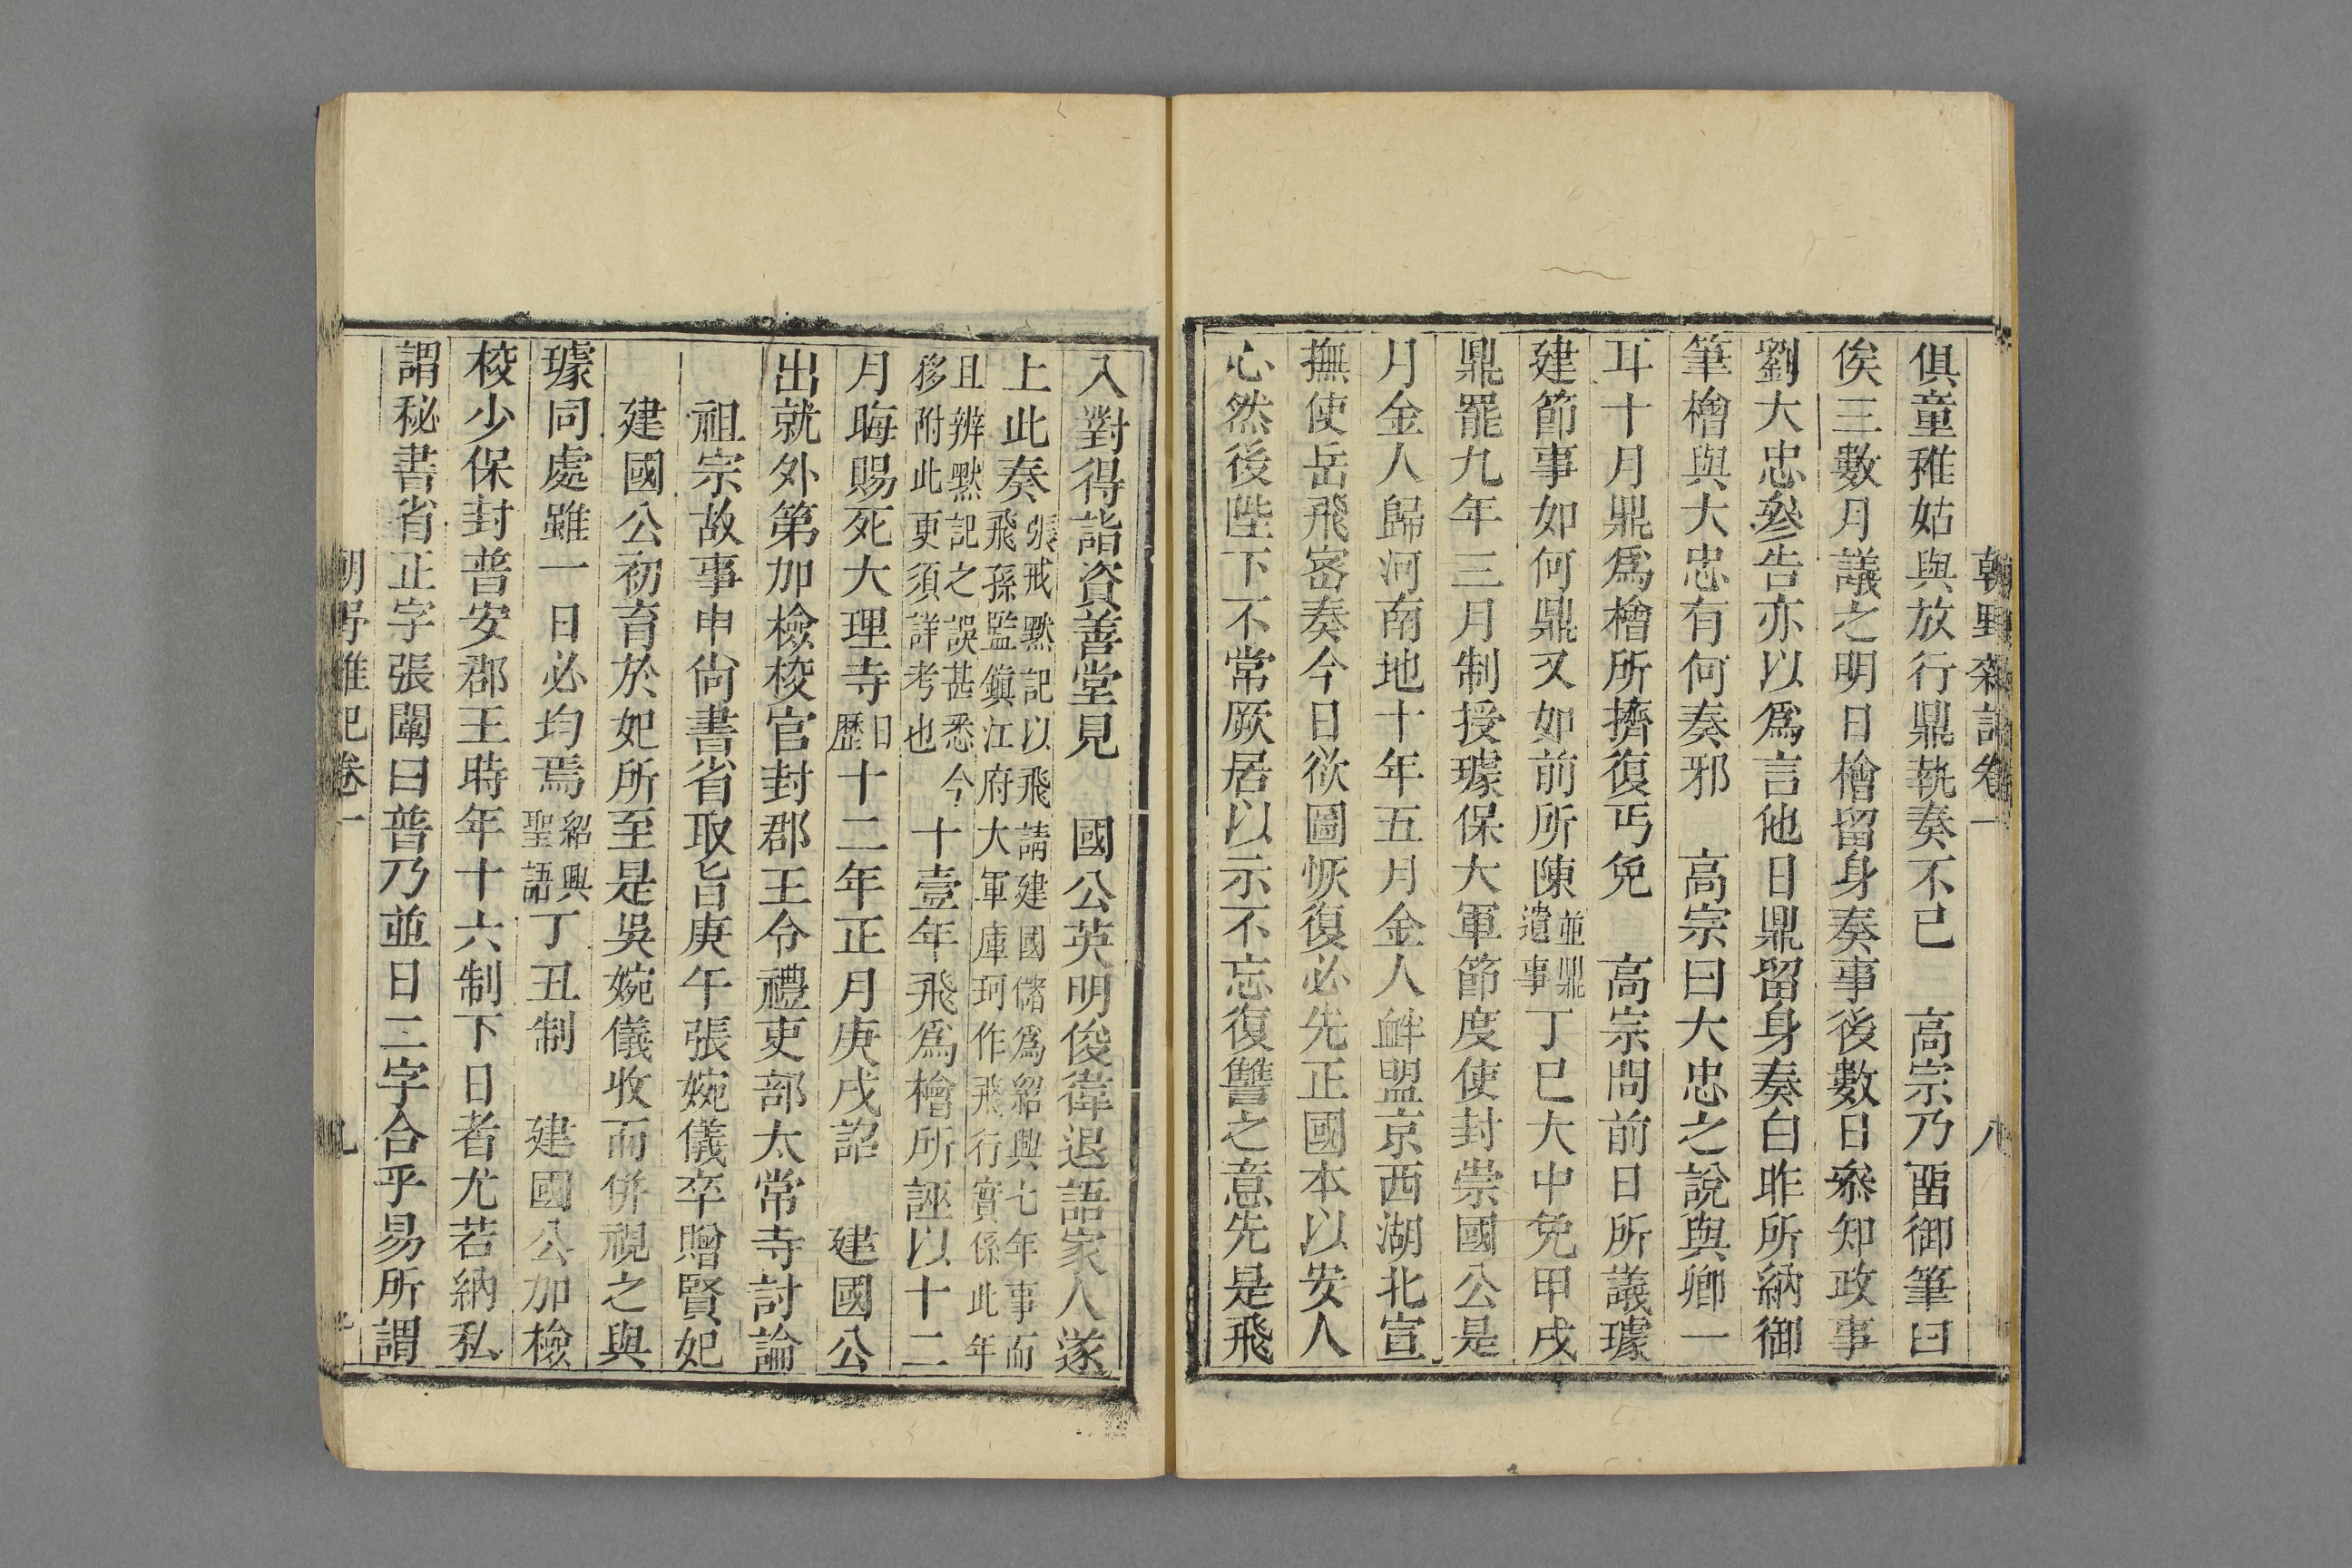 朝野雜記卷一 八
俱童稚姑與放行鼎執奏不已 高宗乃畱御筆曰
俟三數月議之明日檜留身奏事後數日叅知政事
劉大忠叅告亦以爲言他日鼎留身奏白昨所納御
筆檜與大忠有何奏邪 高宗曰大忠之說與卿一
耳十月鼎爲檜所擠復丐免 高宗問前日所議璩
建節事如何鼎又如前所陳並鼎遺事丁巳大中免甲戌
鼎罷九年三月制授璩保大軍節度使封崇國公是
月金人歸河南地十年五月金人衅盟京西湖北宣
撫使岳飛密奏今日欲圖恢復必先正國本以安人
心然後陛下不常厥居以示不忘復讐之意先是飛
入對得詣資善堂見 國公英明俊偉退語家人遂
上此奏張戒黙記以飛請建國儲爲紹興七年事而飛孫監鎭江府大軍庫珂作飛行實係此年
且辨黙記之誤甚悉今移附此更須詳考也十壹年飛爲檜所誣以十二
月晦賜死大理寺日歷十二年正月庚戌詔 建國公
出就外第加檢校官封郡王令禮吏部太常寺討論
祖宗故事申尙書省取旨庚午張婉儀卒贈賢妃
建國公初育於妃所至是吳婉儀收而併視之與
璩同處雖一日必均焉紹興聖語丁丑制 建國公加檢
校少保封普安郡王時年十六制下日者尤若納私
謂秘書省正字張闡曰普乃並日二字合乎易所謂
朝野雜記卷一 九